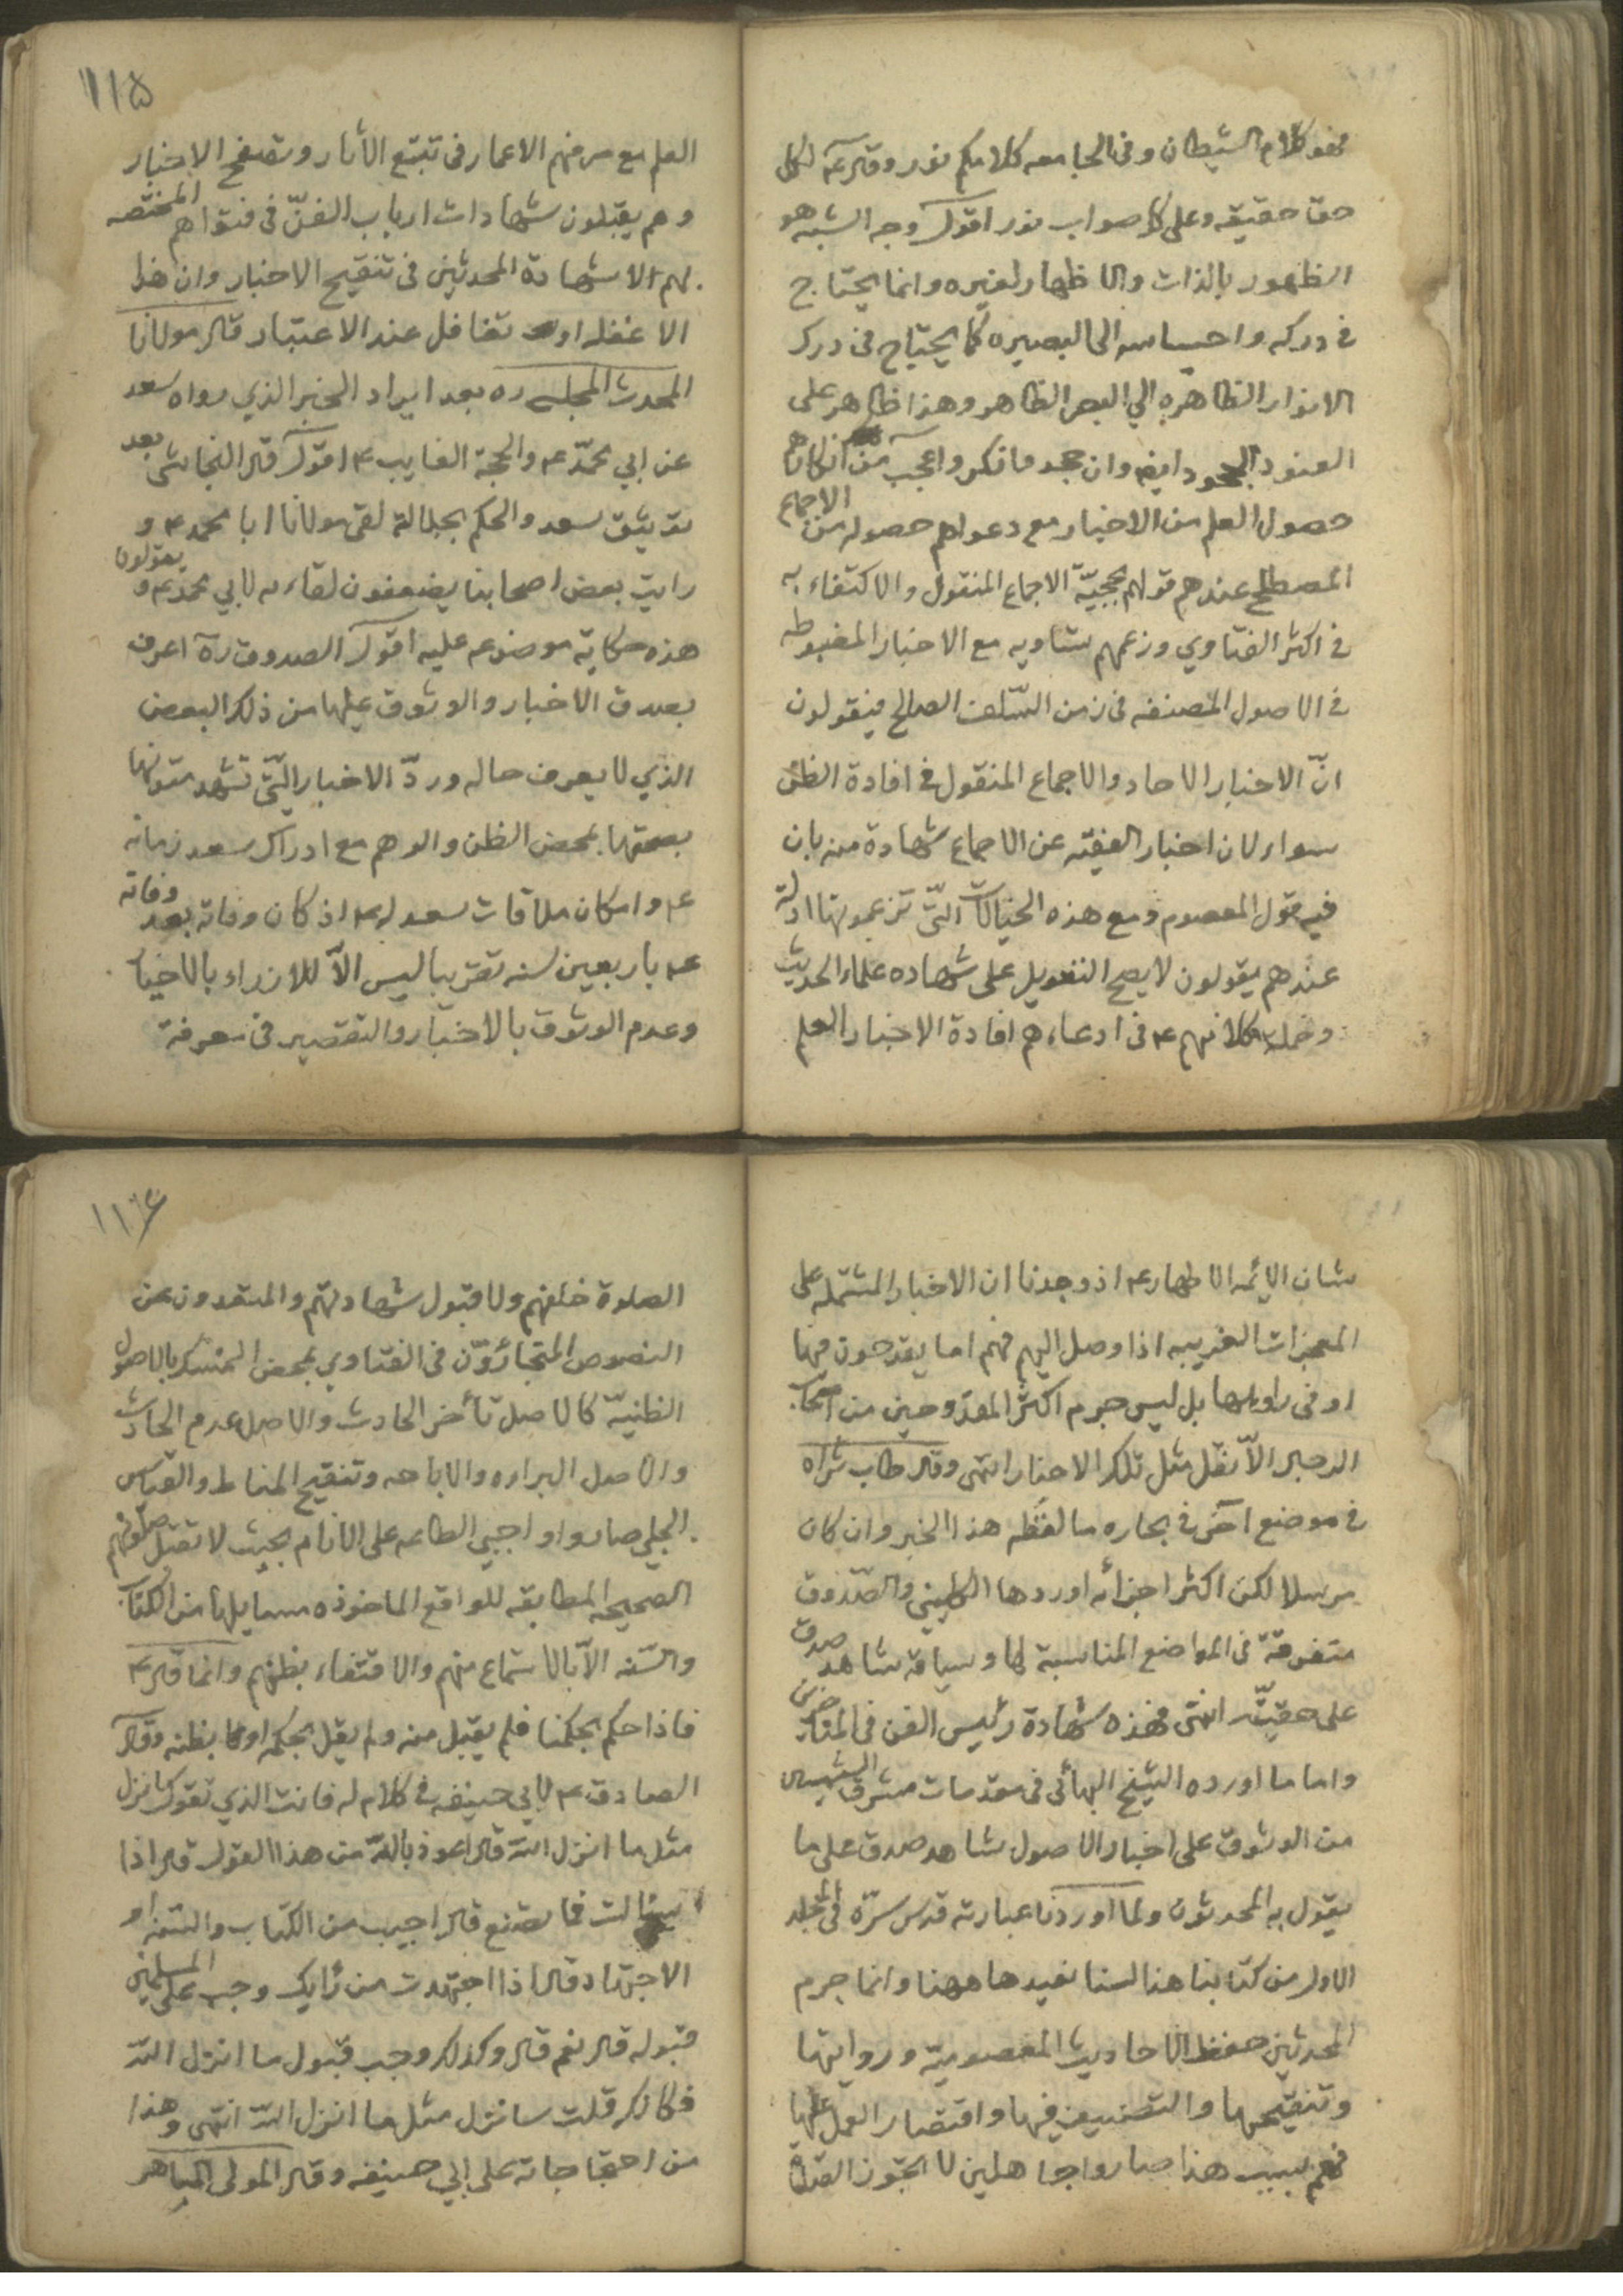 فهو كلام الشيطان وفي الجامعه كلامكم نور وقال ع لكل
حق حقيقه وعلى كل صواب نور اقول وجه الشبه هو
الظهور بالذات والاظهار لغيره وانما يحتاج
في دركه واحساسه الى البصيره كما يحتاج في درك
الانوار الظاهره الي البصر الظاهر وهذا ظاهر على
العنود الجحود ايضا وان جحد وانكر واعجب من انكارهم
حصول العلم من الاخبار مع دعواهم حصوله من الاجماع
المصطلح عندهم قولهم بحجيّة الاجماع المنقول والاكتفاء به
في اكثر الفتاوي وزعمهم تساويه مع الاخبار المضبوطه
في الاصول المصنفه في زمن السّلف الصالح فيقولون
انّ الاخبار الاحاد والاجماع المنقول في افادة الظن
سواء لان اخبار الفقيه عن الاجماع شهادة منه بان
فيه قول المعصوم ومع هذه الخيالات التّي تزعمونها ادلة
عندهم يقولون لا يصح التعويل على شهاده علماء الحديث
وحملة كلامهم ع في ادعاءهم افادة الاخبار العلم
١١٥
العلم مع صرفهم الاعمار في تتبع الأثار وتصفح الاخبار
وهم يقبلون شهادات ارباب الفنّ في فنواهم المختصه
بهم الا شهادة المحدثين في تنقيح الاخبار وان هذا
الا غفله او تغافل عند الاعتبار قال مولانا
المحدث المجلسي ره بعد ايراد الخبر الذي رواه سعد
عن ابي محمّد ع والحجة الغايب ع اقول قال النجاشي بعد
توثيق سعد والحكم بجلالة لقى مولانا ابا محمد ع و
رايت بعض اصحابنا يضعفون لقاءه لابي محمد ع ويقولون
هذه حكاية موضوعه عليه اقول الصدوق ره اعرف
بصدق الاخبار والوثوق عليها من ذلك البعض
الذي لا يعرف حاله وردّ الاخبار التّي تشهد متونها
بصحتها بمحض الظن والوهم مع ادراك سعد زمانه
ع وامكان ملاقات سعد له ع اذ كان وفاته بعد وفاته
ع باربعين سنه تقريبا ليس الاّ للازراء بالاخيار
وعدم الوثوق بالاخبار والتقصير في معرفة
شان الائمه الاطهار ع اذ وجدنا ان الاخبار المشتمله على
المعجزات الغريبه اذا وصل اليهم فهم اما يقدحون فيها
او في راويها بل ليس جرم اكثر المقدوحين من اصحاب
الرجال الاّ نقل مثل تلك الاخبار انتهى وقال طاب ثراه
في موضع آخر في بحاره ما لفظه هذا الخبر وان كان
مرسلا لكن اكثر اجزائه اوردها الكليني والصّدوق
متفرقة في المواضع المناسبة لها وسياقه شاهد صدق
على حقيّته انتهى فهذه شهادة رئيس الفن في المتاخرين
واما ما اورده الشيخ البهائي في مقدمات مشرق الشمسين
من الوثوق على اخبار الاصول شاهد صدق على ما
يقول به المحدثون ولما اوردنا عبارته قدس سرّه في المجلد
الاول من كتابنا هذا لسنا نعيدها ههنا وانما جرم
المحدثين حفظ الاحاديث المعصوميّه وروايتها
وتنقيحها والتصنيف فيها واقتصار العمل عليها
فهم بسبب هذا صاروا جاهلين لا يجوز الصلاة
١١٦
الصلوة خلفهم ولا قبول شهادتهم والمبتعدون عن
النصوص المتجازوّن في الفتاوي بمحض التمسك بالاصول
الظنيّه كالاصل تأخر الحادث والاصل عدم الحادث
والاصل البراءه والاباحه وتنقيح المناط والقياس
الجلي صاروا واجبي الطاعه على الانام بحيث لا تقبل صلوتهم
الصحيحه المطابقه للواقع الماخوذه مسايلها من الكتاب
والسّنه الاّ بالاستماع منهم والاقتفاء بظنهم وانما قال ع
فاذا حكم بحكمنا فلم يقبل منه ولم يقل بحكمه او بظنه وقال
الصادق ع لابي حنيفه في كلام له فانت الذي تقول سانزل
مثل ما انزل الله قال اعوذ بالله من هذا القول قال اذا
سئالت فما تصنع قال اجيب من الكتاب والسّنه او
الاجتهاد قال اذا اجتهدت من رأيك وجب على المسلمين
قبوله قال نعم قال وكذلك وجب قبول ما انزل الله
فكانك قلت سانزل مثل ما انزل الله انتهى وهذا
من احتجاجاته على ابي حنيفه وقال المولى الماهر